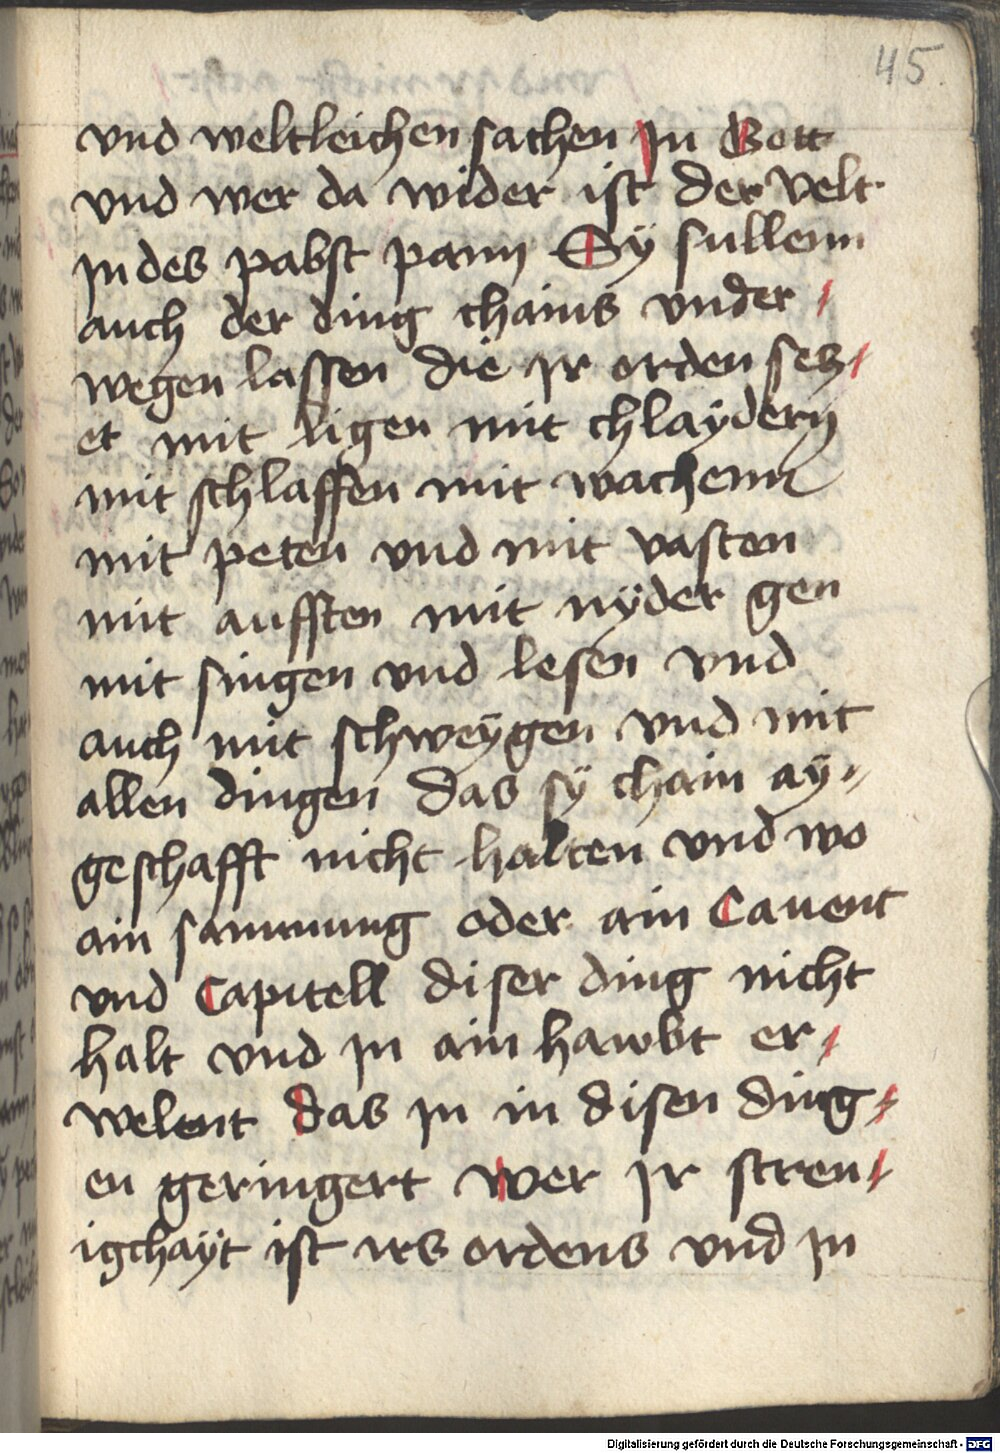 45.
vnd weltleichen sachen Jn Gott
vnd wer da wider ist der velt
Jn des pabst pann Sÿ sullenn
auch der ding chains vnder
wegen lassen die Jr orden secz
et mit ligen mit chlaÿdern
mit schlaffen mit wachenn
mit peten vnd mit vasten
mit aufsten mit nÿder gen
mit singen vnd lesen vnd
auch mit schweÿgen vnd mit
allen dingen das sÿ chain aÿ
geschafft nicht halten vnd wo
ain samnung oder ain Cauent
vnd Capitell diser ding nicht
halt vnd Jn ain hawbt er
welent das Jn in disen ding
en geringert wer Jr stren
igchaÿt ist irs ordens vnd Jn
Digitalisierung gefördert durch die Deutsche Forschungsgemeinschaft - DFG